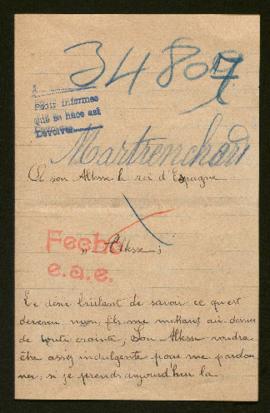 34807
A
Pedir informes
que se hace así
Devolver
Martrenchard
A son Altesse le roi d'Espagne
Fecho
e.a.e.
"Altesse;
Le désir brûlant de savoir ce qu'est
devenu mon fils me mettant au-dessus
de toute crainte, Son Altesse voudra
être assez indulgente pour me pardon
ner, si je prends aujourd'hui la